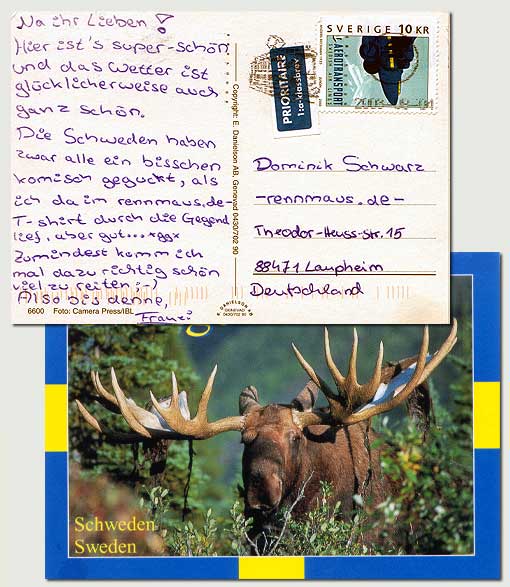 Na ihr Lieben!
Hier ist's super-schön
und das Wetter ist
glücklicherweise auch
ganz schön.
Die Schweden haben
zwar alle ein bisschen
komisch geguckt, als
ich da im rennmaus.de-
T-shirt durch die Gegend
lief, aber gut... *gg*
Zumindest komm ich
mal dazu richtig schön
viel zu reiten ;-)
Also bis denne,
Franzi
6600 Foto: Camera Press/IBL
Copyright: E. Danielson AB, Genevad 0430/702 90
DANIELSON
GENEVAD
0430/702 90
PRIORITAIRE
1:a-klassbrev
SVERIGE 10 KR
AEROTRANSPORT
SWEDISH AIR LINES
Dominik Schwarz
-rennmaus.de-
Theodor-Heuss-Str. 15
88471 Laupheim
Deutschland
Schweden
Sweden